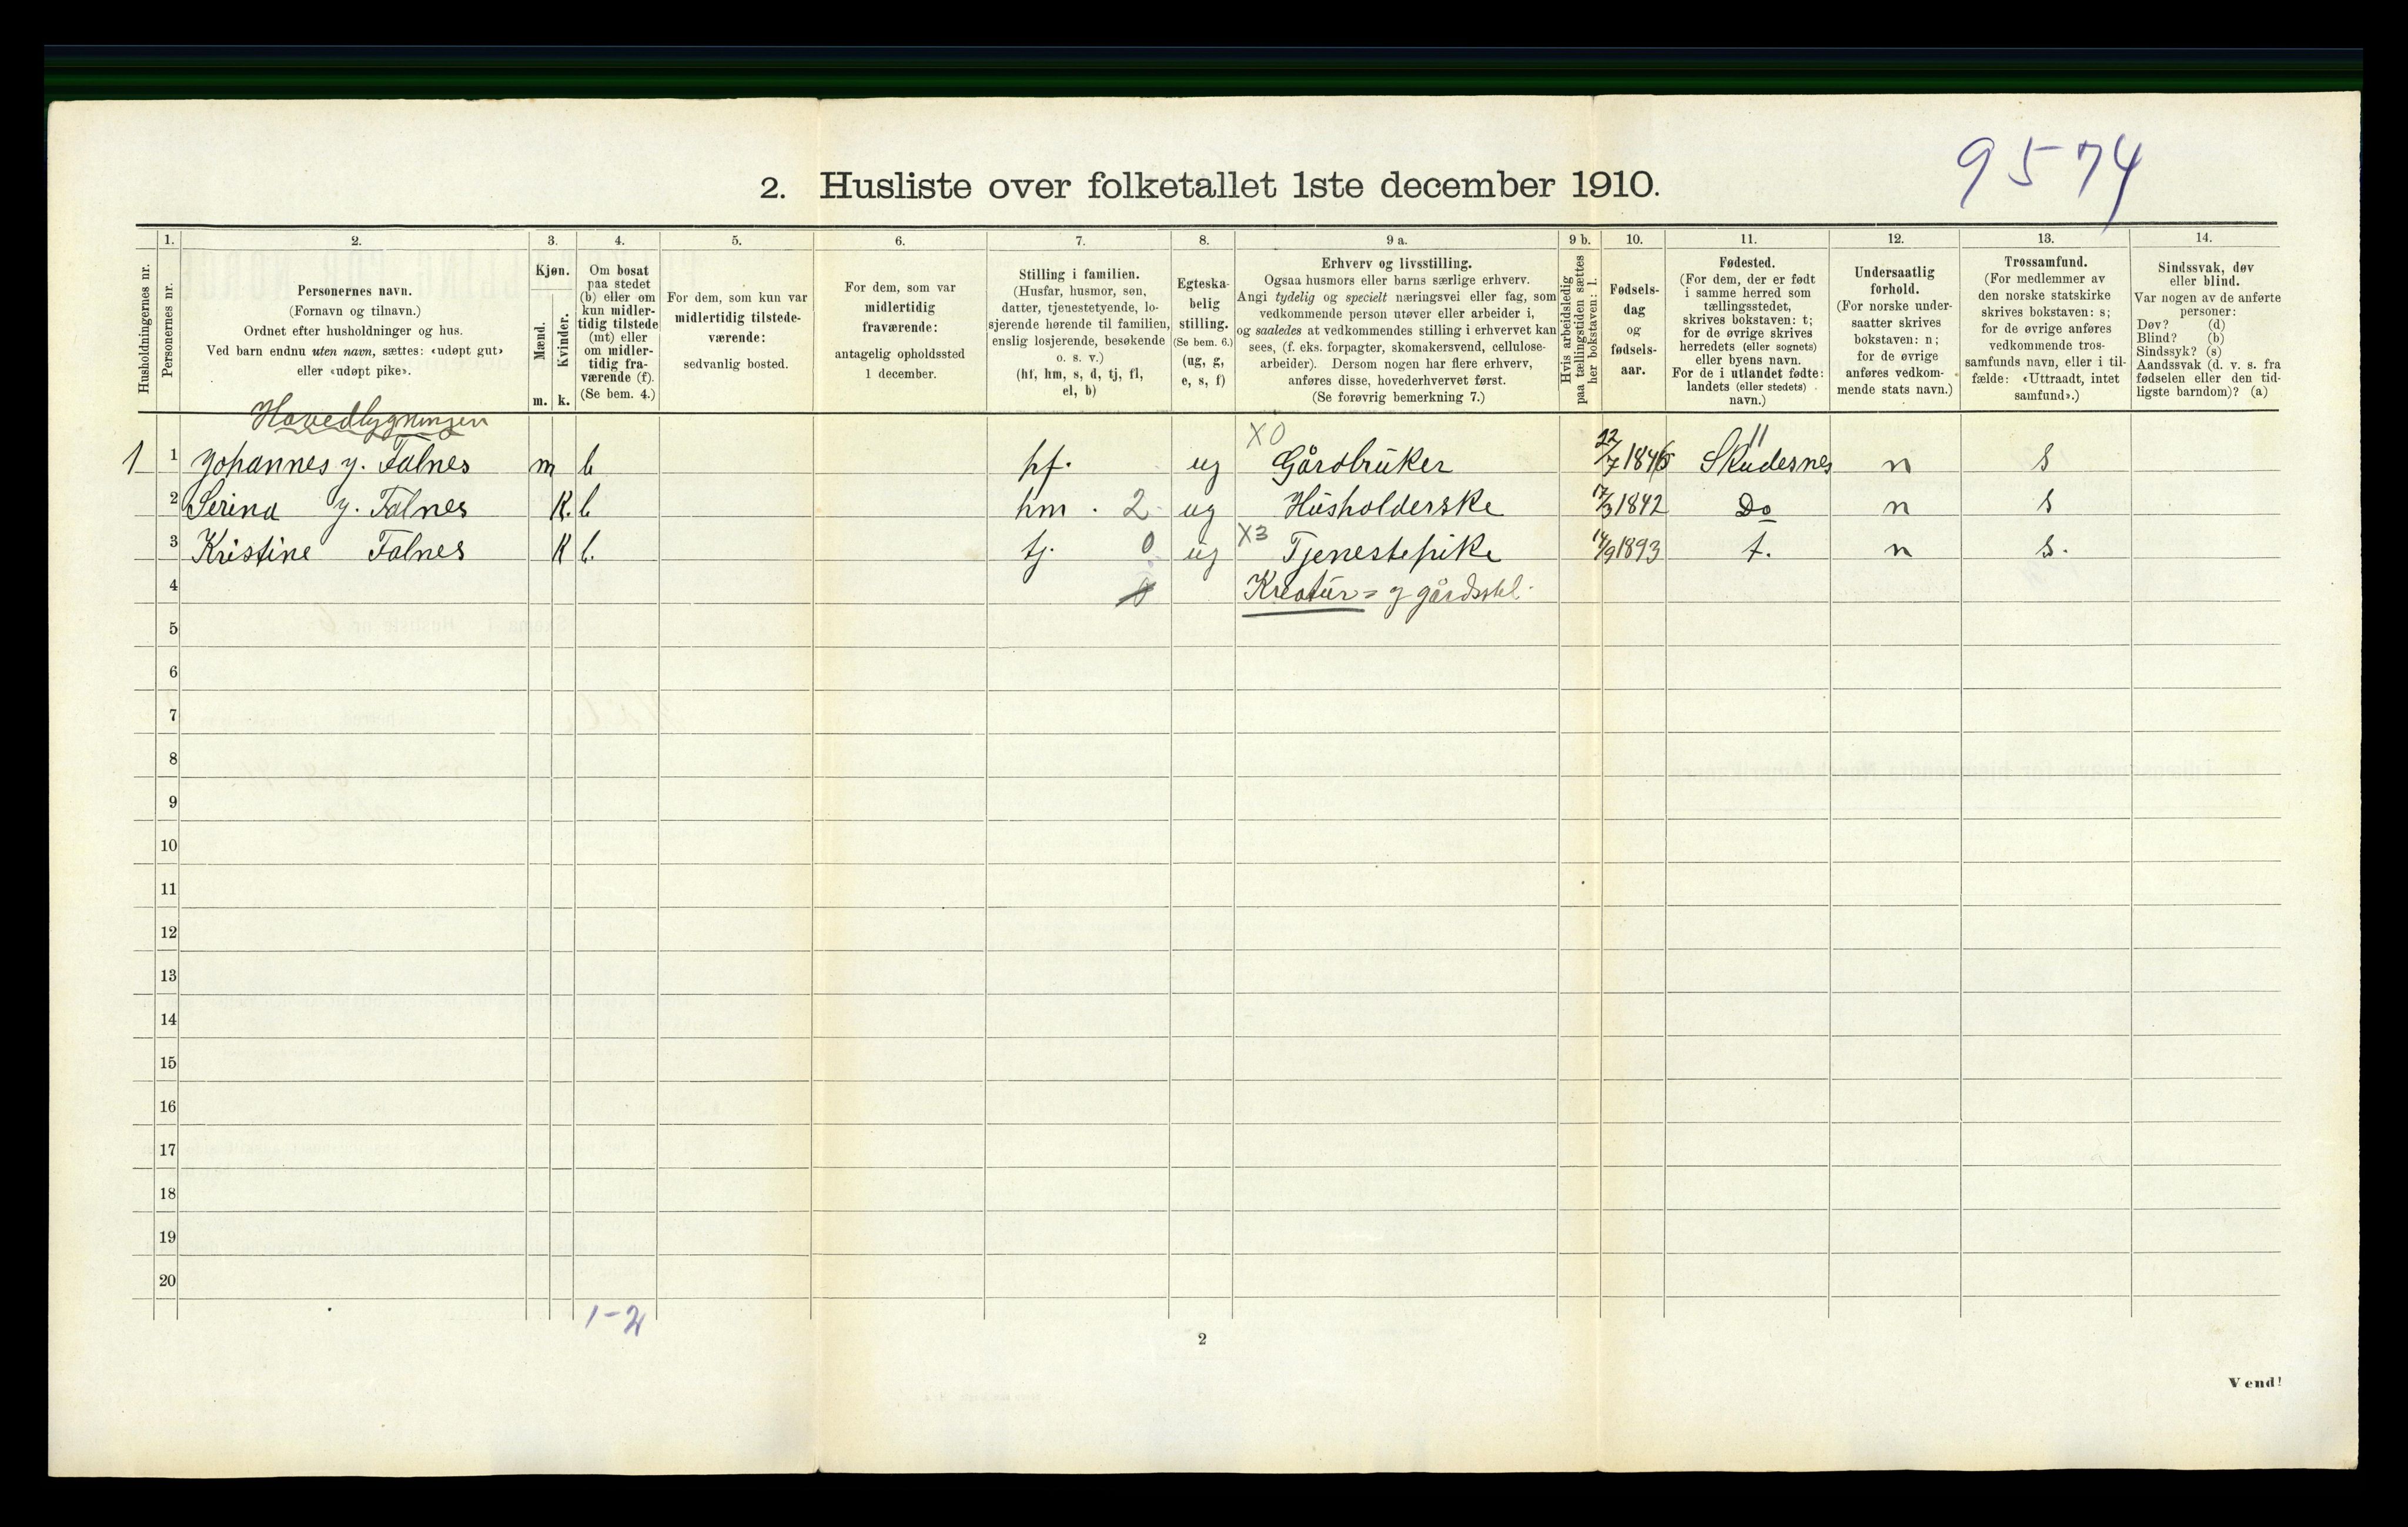 9574
2. Husliste over folketallet 1ste december 1910.
Husholdningernes nr.
1.
Personernes nr.
2.
Personernes navn.
(Fornavn og tilnavn.)
Ordnet efter husholdninger og hus.
Ved barn endnu uten navn, sættes: «udøpt gut»
eller «udøpt pike».
3.
Kjøn.
Mænd.
Kvinder.
m. k.
4.
Om bosat
paa stedet
(b) eller om
kun midler-
tidig tilstede
(mt) eller
om midler-
tidig fra-
værende (f).
(Se bem. 4.)
5.
For dem, som kun var
midlertidig tilstede-
værende:
sedvanlig bosted.
6.
For dem, som var
midlertidig
fraværende:
antagelig opholdssted
1 december.
7.
Stilling i familien.
(Husfar, husmor, søn,
datter, tjenestetyende, lo-
sjerende hørende til familien,
enslig losjerende, besøkende
o. s. v.)
(hf, hm, s, d, tj, fl,
el, b)
8.
Egteska-
belig
stilling.
(Se bem. 6.)
(ug, g,
e, s, f)
9 a.
Erhverv og livsstilling.
Ogsaa husmors eller barns særlige erhverv.
Angi tydelig og specielt næringsvei eller fag, som
vedkommende person utøver eller arbeider i,
og saaledes at vedkommendes stilling i erhvervet kan
sees, (f. eks. forpagter, skomakersvend, cellulose-
arbeider). Dersom nogen har flere erhverv,
anføres disse, hovederhvervet først.
(Se forøvrig bemerkning 7.)
9 b.
Hvis arbeidsledig
paa tællingstiden sættes
her bokstaven: l.
10.
Fødsels-
dag
og
fødsels-
aar.
11.
Fødested.
(For dem, der er født
i samme herred som
tællingsstedet,
skrives bokstaven: t;
for de øvrige skrives
herredets (eller sognets)
eller byens navn.
For de i utlandet fødte:
landets (eller stedets)
navn.)
12.
Undersaatlig
forhold.
(For norske under-
saatter skrives
bokstaven: n;
for de øvrige
anføres vedkom-
mende stats navn.)
13.
Trossamfund.
(For medlemmer av
den norske statskirke
skrives bokstaven: s;
for de øvrige anføres
vedkommende tros-
samfunds navn, eller i til-
fælde: «Uttraadt, intet
samfund».)
14.
Sindssvak, døv
eller blind.
Var nogen av de anførte
personer:
Døv? (d)
Blind? (b)
Sindssyk? (s)
Aandssvak (d. v. s. fra
fødselen eller den tid-
ligste barndom)? (a)
Hovedbygningen
1 1 Johannes J. Falnes m b hf. ug X0 Gårdbruker 22/7 Skudesnes n s
2 Serina J. Falnes K. b hm . 2 ug Husholderske 17/3 1842 Do n s
3 Kristine Falnes K b. tj. 0 ug X3 Tjenestepike 14/9 1893 t. n s.
4 Kreatur= g gårdsstel.
5
6
7
8
9
10
11
12
13
14
15
16
17
18
19
20
1-2
2
Vend!